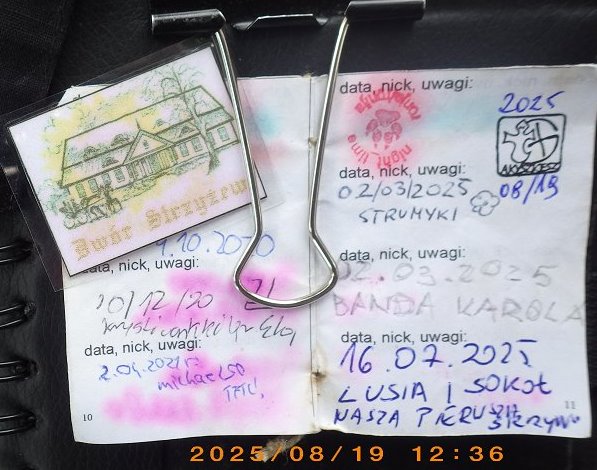 Dwór Strzyżew
9.10.2020
data, nick, uwagi:
10/12/20
data, nick, uwagi:
2.04.2021
michael50
TFTC!
10
data, nick, uwagi:
2025
night
08/19
data, nick, uwagi:
02/03/2025
STRUMYKI
data, nick, uwagi:
02.03.2025
BANDA KAROLA
data, nick, uwagi:
16.07.2025
LUSIA I SOKOŁ
NASZA PIERWSZA SKRZYNKA
11
2025/08/19 12:36